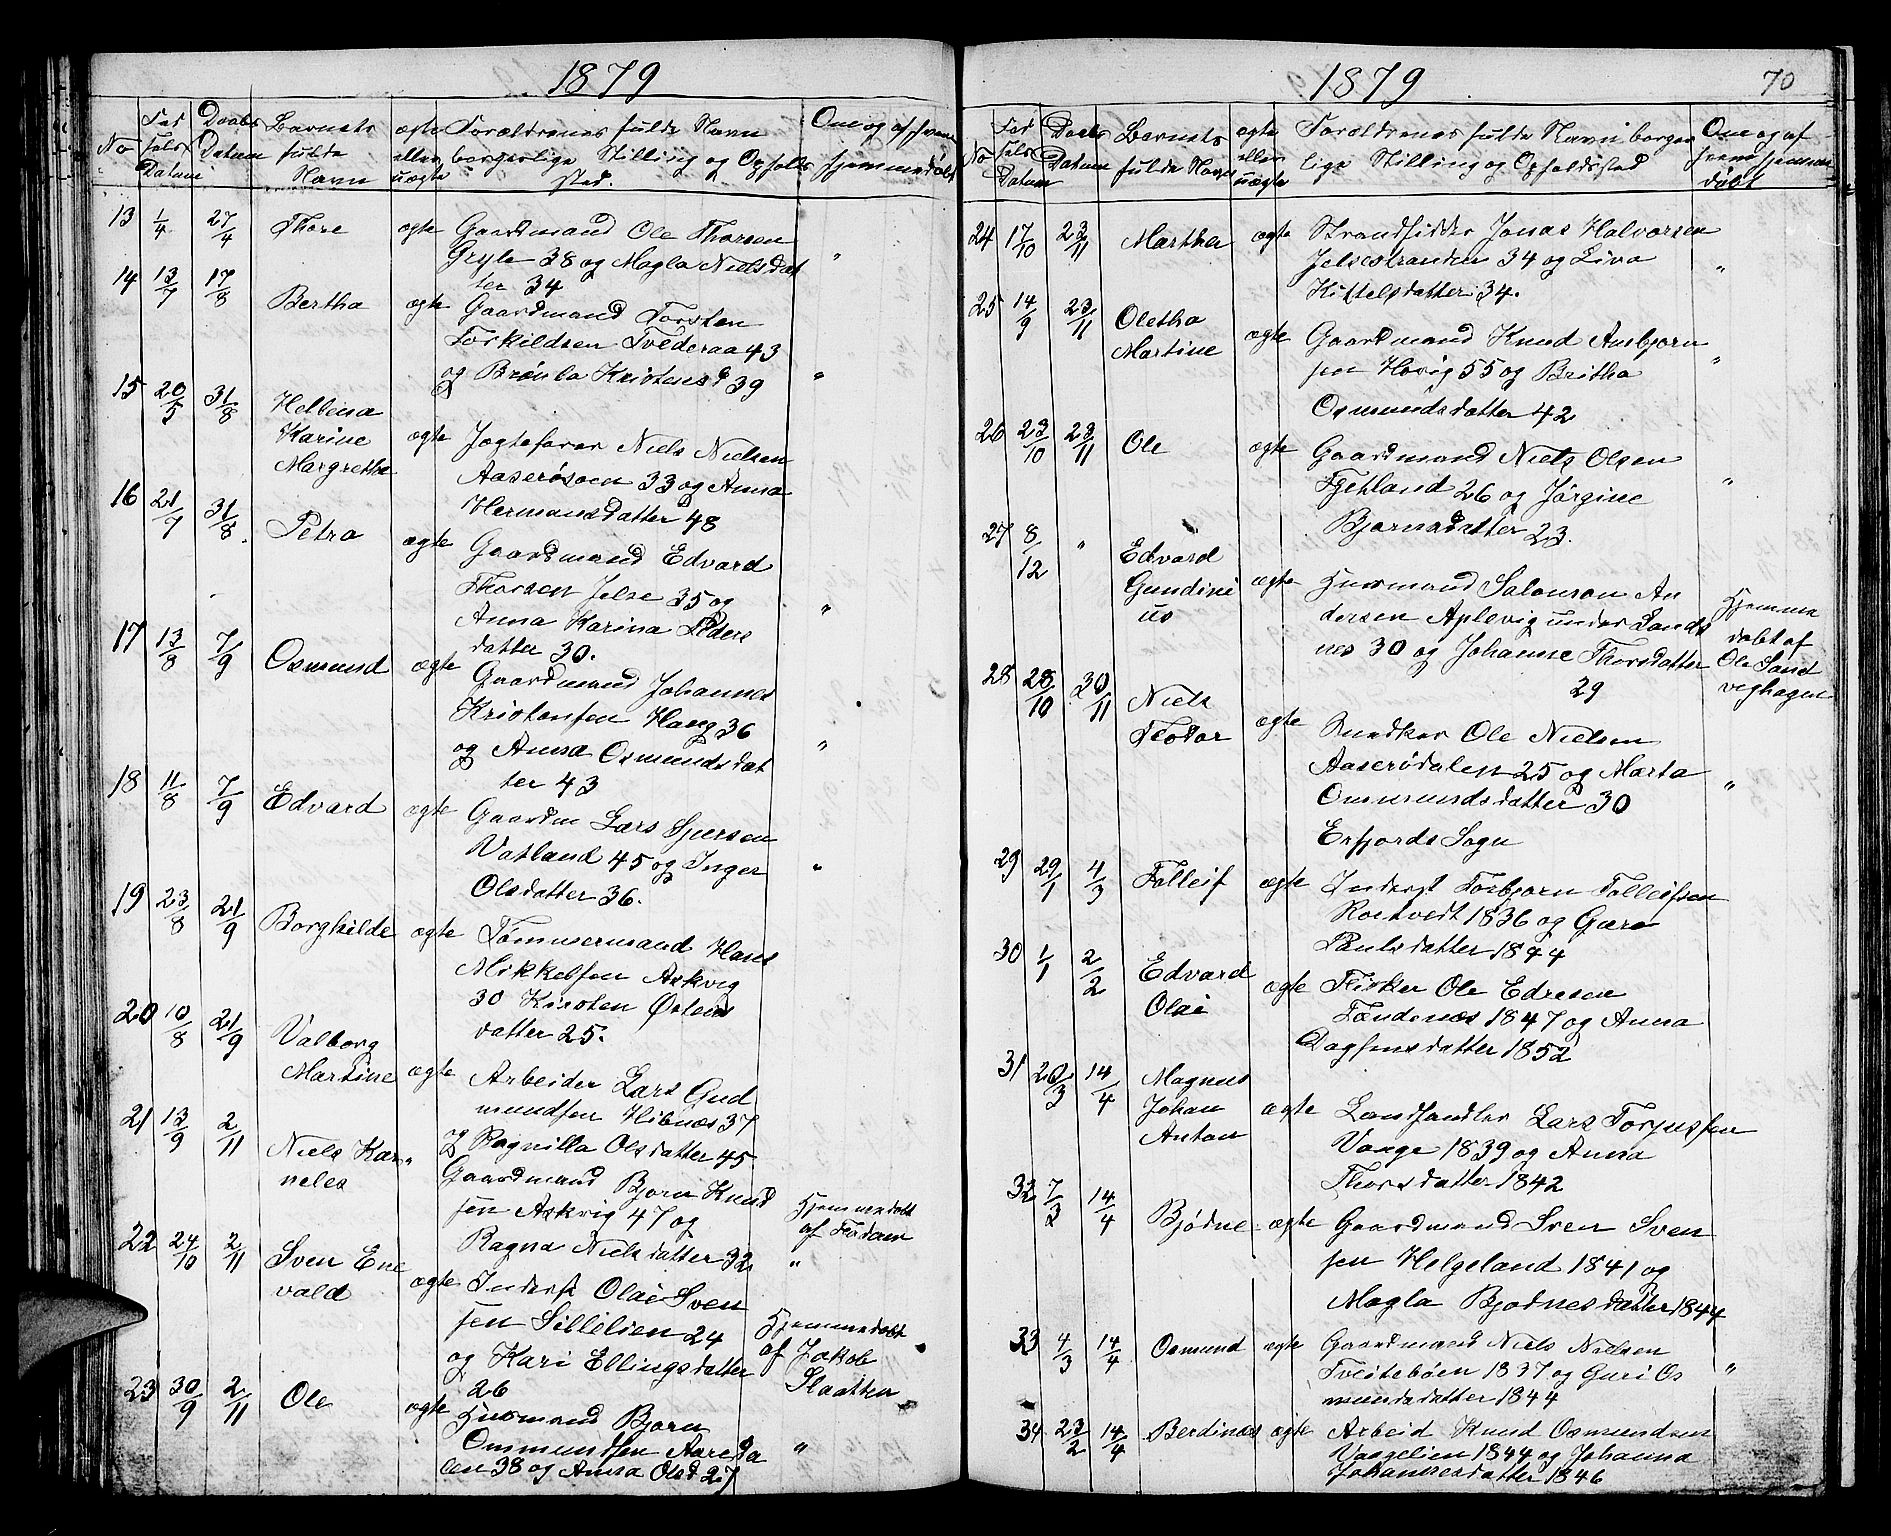 1879
No
Fød
sels
Datum
Daabs
Datum
Barnets
fulde
Navn
ægte
eller
uægte
Forældrenes fulde Navn
borgerlige Stilling og Opholds
sted.
Om og af hvem
hjemmedøbt
13 1/4 27/4 Thore ægte Gaardmand Ole Thorsen
Gryle 38 og Magla Nielsdat
ter 34 "
14 13/7 17/8 Bertha ægte Gaardmand Torsten
Torkildsen Tvederaa 43
og Brønla Kristensd 39 "
15 20/5 31/8 Hellina
Karine
Margrethe
ægte Jagtefører Niels Nielsen
Aaserøsoen 33 og Anna
Hermansdatter 48
16 21/7 31/8 Petra ægte Gaardmand Edvard
Thorsen Jelse 35 og
Anna Karina Peders
datter 30. "
17 13/8 7/9 Osmund ægte Gaardmand Johannes
Kristensen Haug 36
og Anna Osmundsdat
ter 43 "
18 11/8 7/9 Edvard ægte Gaardm Lars Sjursen
Vatland 45 og Inger
Olsdatter 36. "
19 23/8 21/9 Borghilde ægte Tømmermand Hans
Mikkelsen Askvig
30 Kirsten Østens
datter 25.
20 10/8 21/9 Valborg
Martine ægte Arbeider Lars Gud
mundsen Hibnæs 37
og Ragnilla Olsdatter 45
21 13/9 2/11 Niels Kar
neles
" Gaardmand Bjørn Knud
sen Askvig 47 og
Ragna Nielsdatter 32
Hjemmedøbt
af
"
22 24/10 2/11 Sven Ene
vald
ægte Inders Olai Sven
sen Sillelien 24
og Kari Ellingsdatter
26
Hjemmedøbt
af Jakob
Slaatten
23 30/9 2/11 Ole ægte Husmand Bjørn
Ommundsen Aarøda
len 38 og Anna Olsd 27 "
1879
70
No
Fød
sels
Datum
Daabs
Datum
Barnets
fulde Navn
ægte
eller
uægte
Forældrenes fulde Navn borger
lige Stilling og Opholdssted
Om og af
hvem hjemme
døbt
24 17/10 23/11 Martha ægte Strandsidder Jonas Halvorsen
Jelsestranden 34 og Liva
Kittelsdatter 34. "
25 14/9 23/11 Oletha
Martine
ægte Gaardmand Knud Aasbjørn
sen Hovig 55 og Britha
Osmundsdatter 42 "
26 23/10 23/11 Ole ægte Gaardmand Niels Olsen
Fjetland 26 og Jørgine
Bjørnsdatter 23. "
27 8/12 " Edvard
Gundine
us
ægte Husmand Salomon An
dersen Aplevig under Sands
nes 30 og Johanne Thorsdatter
29
Hjemme
døbt af
Ole Sand
veghagen
28 28/10 30/11 Niels
Teodor
ægte Snedker Ole Nielsen
Aaserødalen 25 og Marta
Osmundsdatter 30 "
Erfjords Sogn
29 29/1 4/3 Tolleif ægte Inderst Torbjørn Tolleifsen
Roetvedt 1836 og Guro
Paulsdatter 1844
30 1/1 2/2 Edvard
Olai
ægte Fisker Ole Edresen
Tændenæs 1847 og Anna
Dagfinsdatter 1852
31 20/3 14/4 Magnus
Johan
Anton
ægte Landhandler Lars Torjussen
Vaage 1839 og Anna
Thorsdatter 1842
32 7/3 14/4 Bjødne ægte Gaardmand Sven Sven
sen Helgeland 1841 og
Magla Bjødnesdatter 1844
33 4/3 14/4 Osmund ægte Gaardmand Niels Nielsen
Tveitebøen 1837 og Guri Os
mundsdatter 1844 "
34 23/2 14/4 Berdines ægte Arbeid Knud Osmundsen
Vaagelien 1844 og Johanna
Johannesdatter 1846